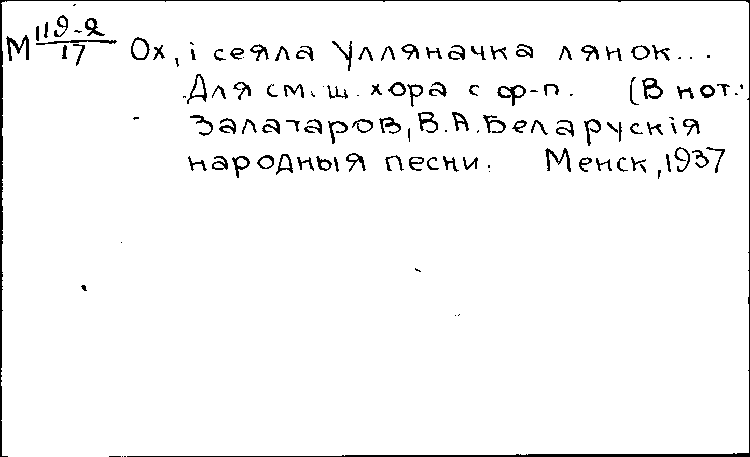 М 119-2/17 Ох, і сеяла Улляначка лянок...
Для см. ш. хора с ф-п. (В нот.:
Залатаров, В.А. Беларускія
народныя песни. Менск, 1937